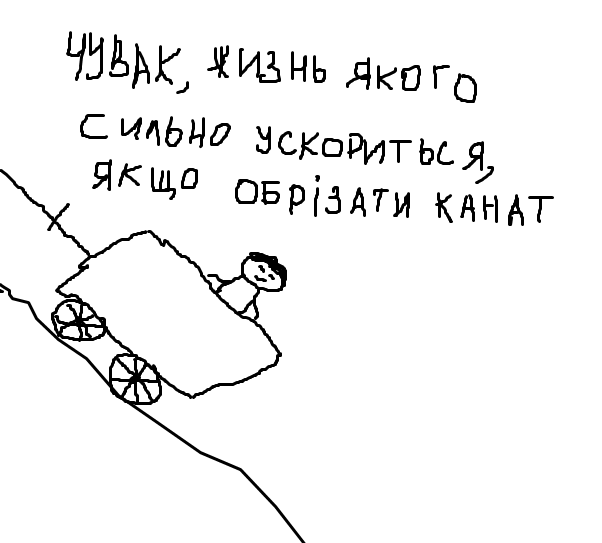 ЧУВАК, ЖИЗНЬ ЯКОГО
СИЛЬНО УСКОРИТЬСЯ,
ЯКЩО ОБРІЗАТИ КАНАТ